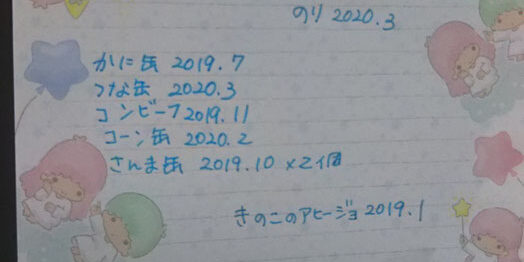 のり 2020.3
かに缶 2019.7
つな缶 2020.3
コンビーフ 2019.11
コーン缶 2020.2
さんま缶 2019.10 ×2個
きのこのアヒージョ 2019.1